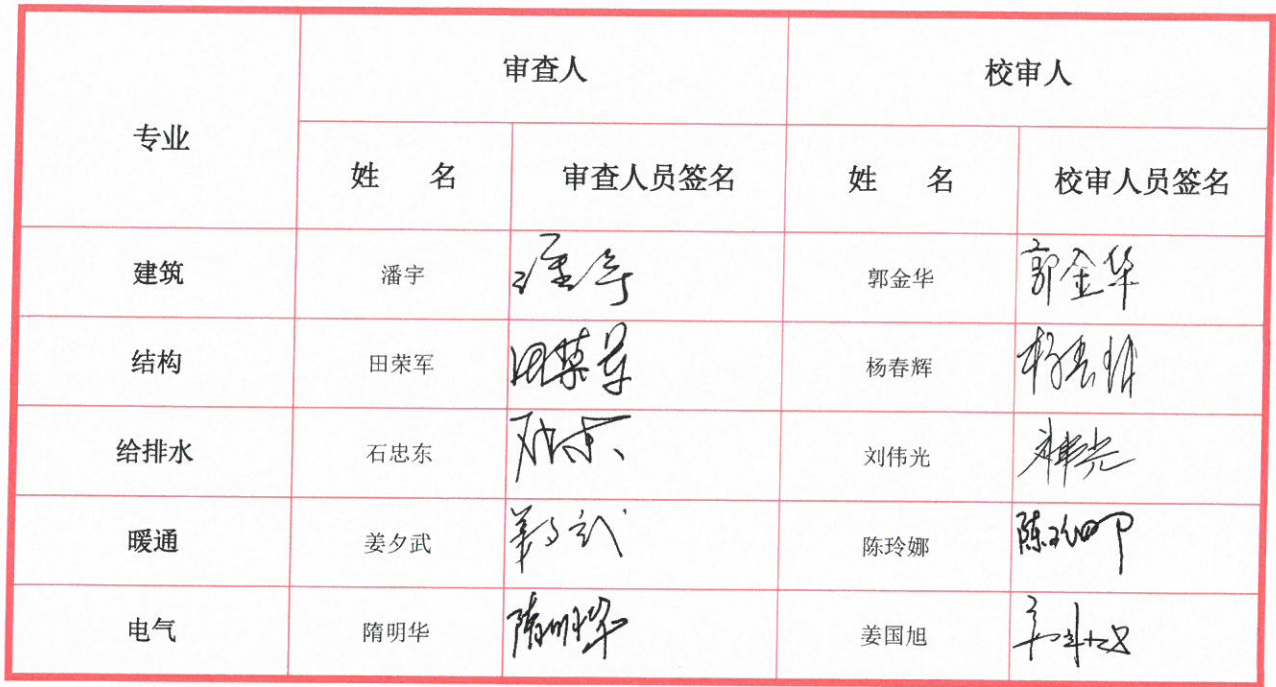 专业 审查人 校审人
姓 名 审查人员签名 姓 名 校审人员签名
建筑 潘宇 潘宇 郭金华 郭金华
结构 田荣军 田荣军 杨春辉 杨春辉
给排水 石忠东 石忠东 刘伟光 刘伟光
暖通 姜夕武 姜夕武 陈玲娜 陈玲娜
电气 隋明华 隋明华 姜国旭